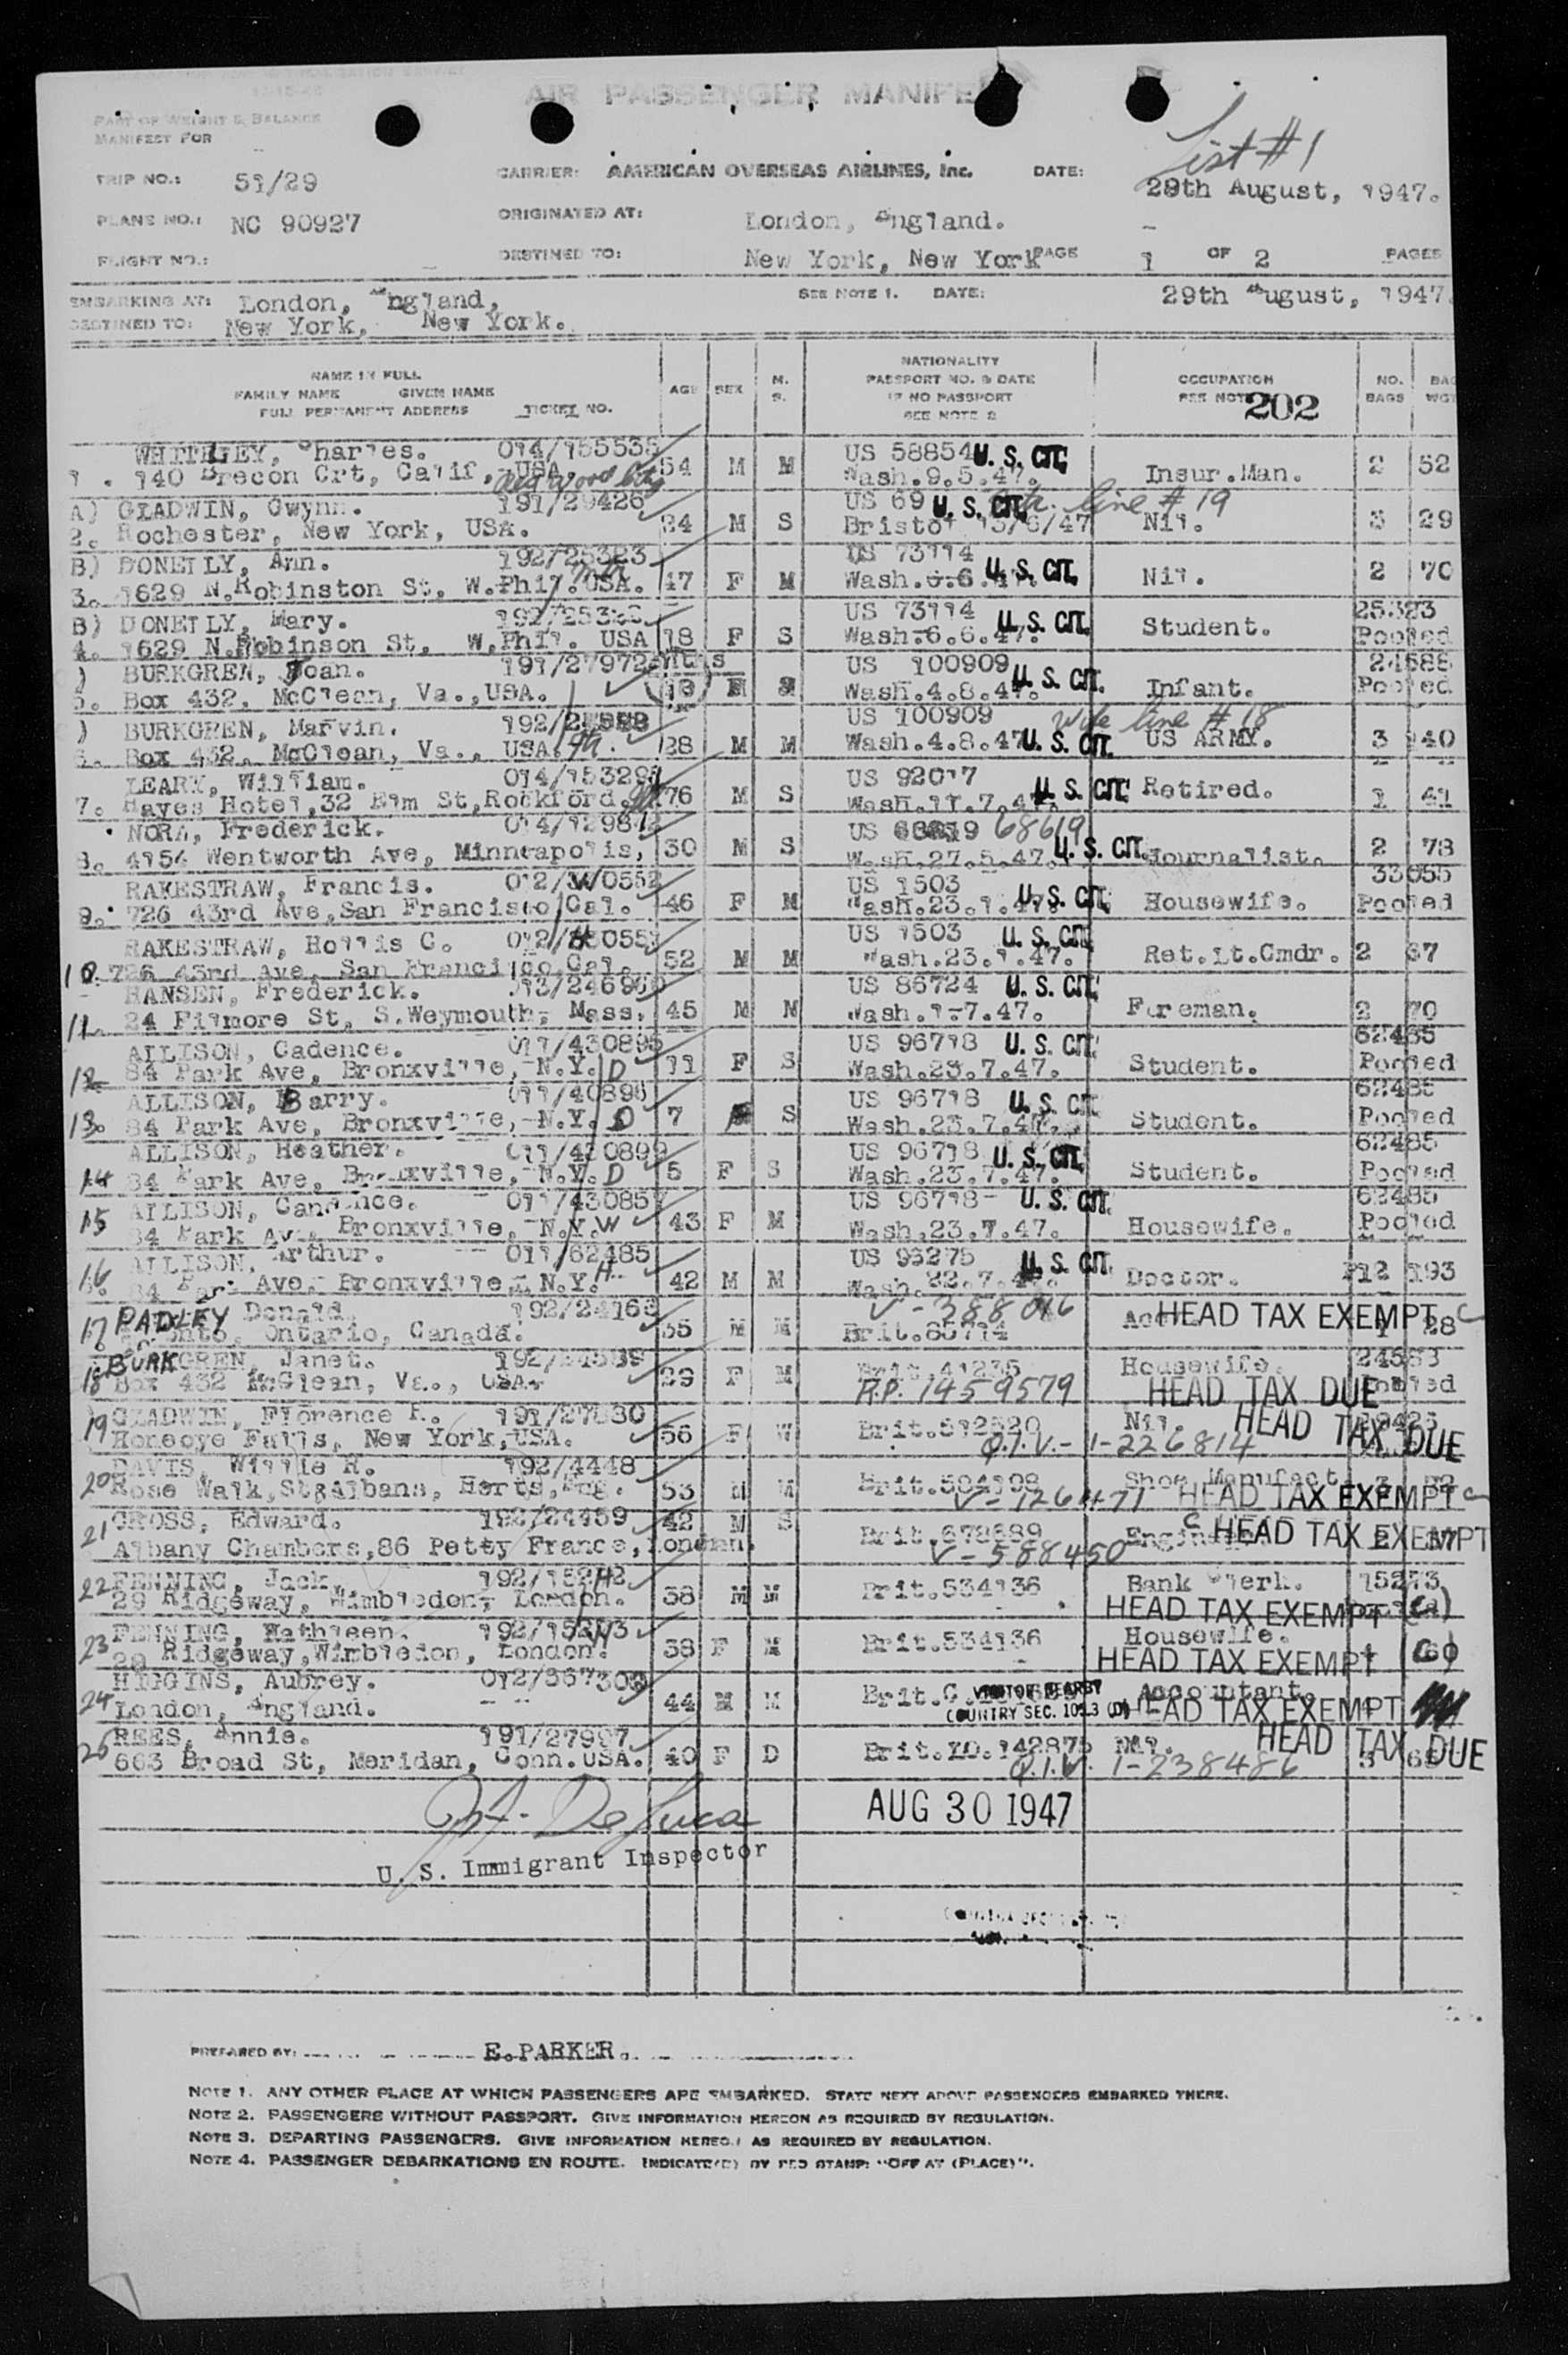 AIR PASSENGER MANIFE
PART OF WEIGHT & BALANCE
MANIFEST FOR
List #1
TRIP NO.: 51/29 CARRIER: AMERICAN OVERSEAS AIRLINES, Inc. DATE: 29th August, 1947.
PLANE NO.: NC 90927 ORIGINATED AT: London, England.
FLIGHT NO.: DESTINED TO: New York, New York PAGE 1 OF 2 PAGES
EMBARKING AT: London, England, SEE NOTE 1. DATE: 29th August, 1947.
DESTINED TO: New York, New York.
NAME IN FULL AGE SEX M. S. NATIONALITY OCCUPATION NO. BAG
FAMILY NAME GIVEN NAME PASSPORT NO. & DATE SEE NOTE 202 BAGS WGT
FULL PERMANENT ADDRESS TICKET NO. IF NO PASSPORT
SEE NOTE 2
WHITELEY, Charles. 014/155535 US 58854 U. S. CIT.
1. 140 Brecon Crt, Calif, USA. 54 M M Wash.9.5.47. Insur.Man. 2 52
A) GLADWIN, Gwynn. 191/29426 US 69 U. S. CIT. line # 19
2. Rochester, New York, USA. 24 M S Bristol 13/6/47 Nil. 3 29
B) DONELLY, Ann. 192/25323 US 73114
3. 1629 N.Robinston St, W.Phil. USA. 47 F M Wash.6.6.47. U. S. CIT. Nil. 2 70
B) DONELLY, Mary. US 73114 U. S. CIT. 25323
4. 1629 N.Robinson St, W.Phil. USA 18 F S Wash.6.6.47. Student. Pooled
) BURKGREN, Joan. 191/27972 mths US 100909 U. S. CIT. 24588
5. Box 432, McClean, Va.,USA. Wash.4.8.47. Infant. Pooled
) BURKGREN, Marvin. US 100909 Wife line # 18
6. Box 432, McClean, Va., USA. 28 M M Wash.4.8.47 U. S. CIT. US ARMY. 3 140
LEARY, William. 014/153295 US 92017
7. Hayes Hotel,32 Elm St,Rockford. 76 M S Wash.11.7.47. U. S. CIT. Retired. 1 41
NORA, Frederick. 014/129842 US 68619
8. 4154 Wentworth Ave, Minneapolis, 30 M S Wash.27.5.47. U. S. CIT. Journalist. 2 78
RAKESTRAW, Francis. US 1503 33055
9. 726 43rd Ave,San Francisco,Cal. 46 F M Wash.23.1.47. U. S. CIT. Housewife. Pooled
RAKESTRAW, Hollis C. US 1503 U. S. CIT.
10. 726 43rd Ave, San Francisco,Cal. 52 M M Wash.23.1.47. Ret.Lt.Cmdr. 2 67
HANSEN, Frederick. 013/246960 US 86724 U. S. CIT.
11. 24 Filmore St, S.Weymouth, Mass. 45 M M Wash.1.7.47. Foreman. 2 70
ALLISON, Cadence. 011/430895 US 96718 U. S. CIT. 62485
12. 84 Park Ave, Bronxville, N.Y. D 11 F S Wash.23.7.47. Student. Pooled
ALLISON, Barry. US 96718 U. S. CIT. 62485
13. 84 Park Ave, Bronxville, N.Y. D 7 S Wash.23.7.47. Student. Pooled
ALLISON, Heather. 011/430899 US 96718 U. S. CIT. 62485
14 84 Park Ave, Bronxville, N.Y. D 5 F S Wash.23.7.47. Student. Pooled
ALLISON, Candence. 011/430857 US 96718 U. S. CIT. 62485
15 84 Park Ave, Bronxville, N.Y. W 43 F M Wash.23.7.47. Housewife. Pooled
ALLISON, Arthur. 011/62485 US 96275 U. S. CIT.
16. 84 Park Ave, Bronxville, N.Y. H 42 M M Wash.22.7.47. Doctor. P12 193
17 PADLEY Donald. 192/24166 V-388016 HEAD TAX EXEMPT C
Toronto, Ontario, Canada. 55 M M 1 28
BURKGREN, Janet. Brit.41235 Housewife. 24588
18 Box 432 McClean, Va., USA. 29 F M A.P. 1459579 HEAD TAX DUE Pooled
19 GLADWIN, Florence R. 191/27830 Brit.512520 Nil. HEAD TAX DUE 29426
Honeoye Falls, New York, USA. 56 F W Q.I.V.- 1-226814
DAVIS, Willie R. 192/4448 Shoe Manufact.
20 Rose Walk,St.Albans, Herts,Eng. 53 M M V-126471 HEAD TAX EXEMPT C
21 GROSS, Edward. 192/24459 42 M S C HEAD TAX EXEMPT
Albany Chambers,86 Petty France,London. V-588450
22 FENNING, Jack. Brit.534136 Bank Clerk. 15273
29 Ridgeway, Wimbledon, London. 38 M M HEAD TAX EXEMPT (C)
23 FENNING, Kathleen. 38 F M Brit.534136 Housewife.
29 Ridgeway,Wimbledon, London. HEAD TAX EXEMPT
24 HIGGINS, Aubrey. 44 M M Accountant.
London, England. COUNTRY SEC. 10 HEAD TAX EXEMPT
25 REES, Annie. 191/27997 HEAD TAX DUE
663 Broad St, Meridan, Conn.USA. 40 F D Brit. 142875 Nil. Q.I.V. 1-238486
AUG 30 1947
U. S. Immigrant Inspector
PREPARED BY: E.PARKER.
NOTE 1. ANY OTHER PLACE AT WHICH PASSENGERS ARE EMBARKED. STATE NEXT ABOVE PASSENGERS EMBARKED THERE.
NOTE 2. PASSENGERS WITHOUT PASSPORT. GIVE INFORMATION HEREON AS REQUIRED BY REGULATION.
NOTE 3. DEPARTING PASSENGERS. GIVE INFORMATION HEREON AS REQUIRED BY REGULATION.
NOTE 4. PASSENGER DEBARKATIONS EN ROUTE. INDICATE(D) BY RED STAMP: "OFF AT (PLACE)".